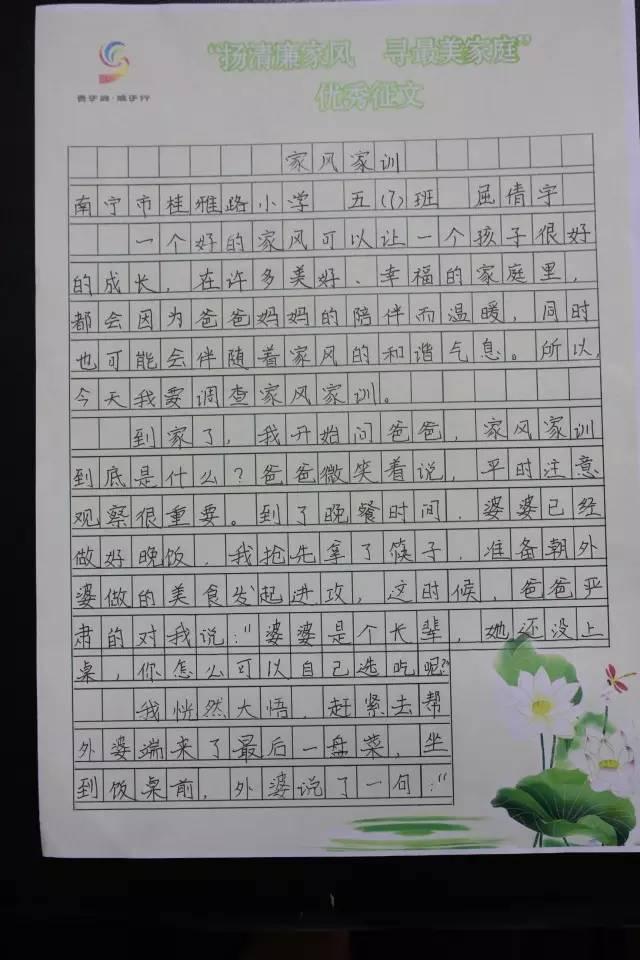 “扬清廉家风 寻最美家庭”
优秀征文
家风家训
南宁市桂雅路小学 五(7)班 屈倩宇
一个好的家风可以让一个孩子很好
的成长，在许多美好、幸福的家庭里，
都会因为爸爸妈妈的陪伴而温暖，同时
也可能会伴随着家风的和谐气息。所以，
今天我要调查家风家训。
到家了，我开始问爸爸，家风家训
到底是什么？爸爸微笑着说，平时注意
观察很重要。到了晚餐时间，婆婆已经
做好晚饭，我抢先拿了筷子，准备朝外
婆做的美食发起进攻，这时候，爸爸严
肃的对我说：“婆婆是个长辈，她还没上
桌，你怎么可以自己选吃呢？”
我恍然大悟，赶紧去帮
外婆端来了最后一盘菜，坐
到饭桌前，外婆说了一句：“